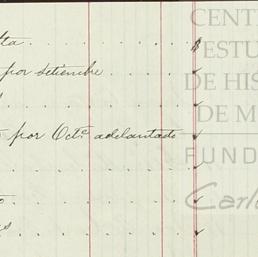 lta
CENT
ESTU
por setiembre
DE HIS
DE M
por Octe adelantado
FUND
Carl
o
s